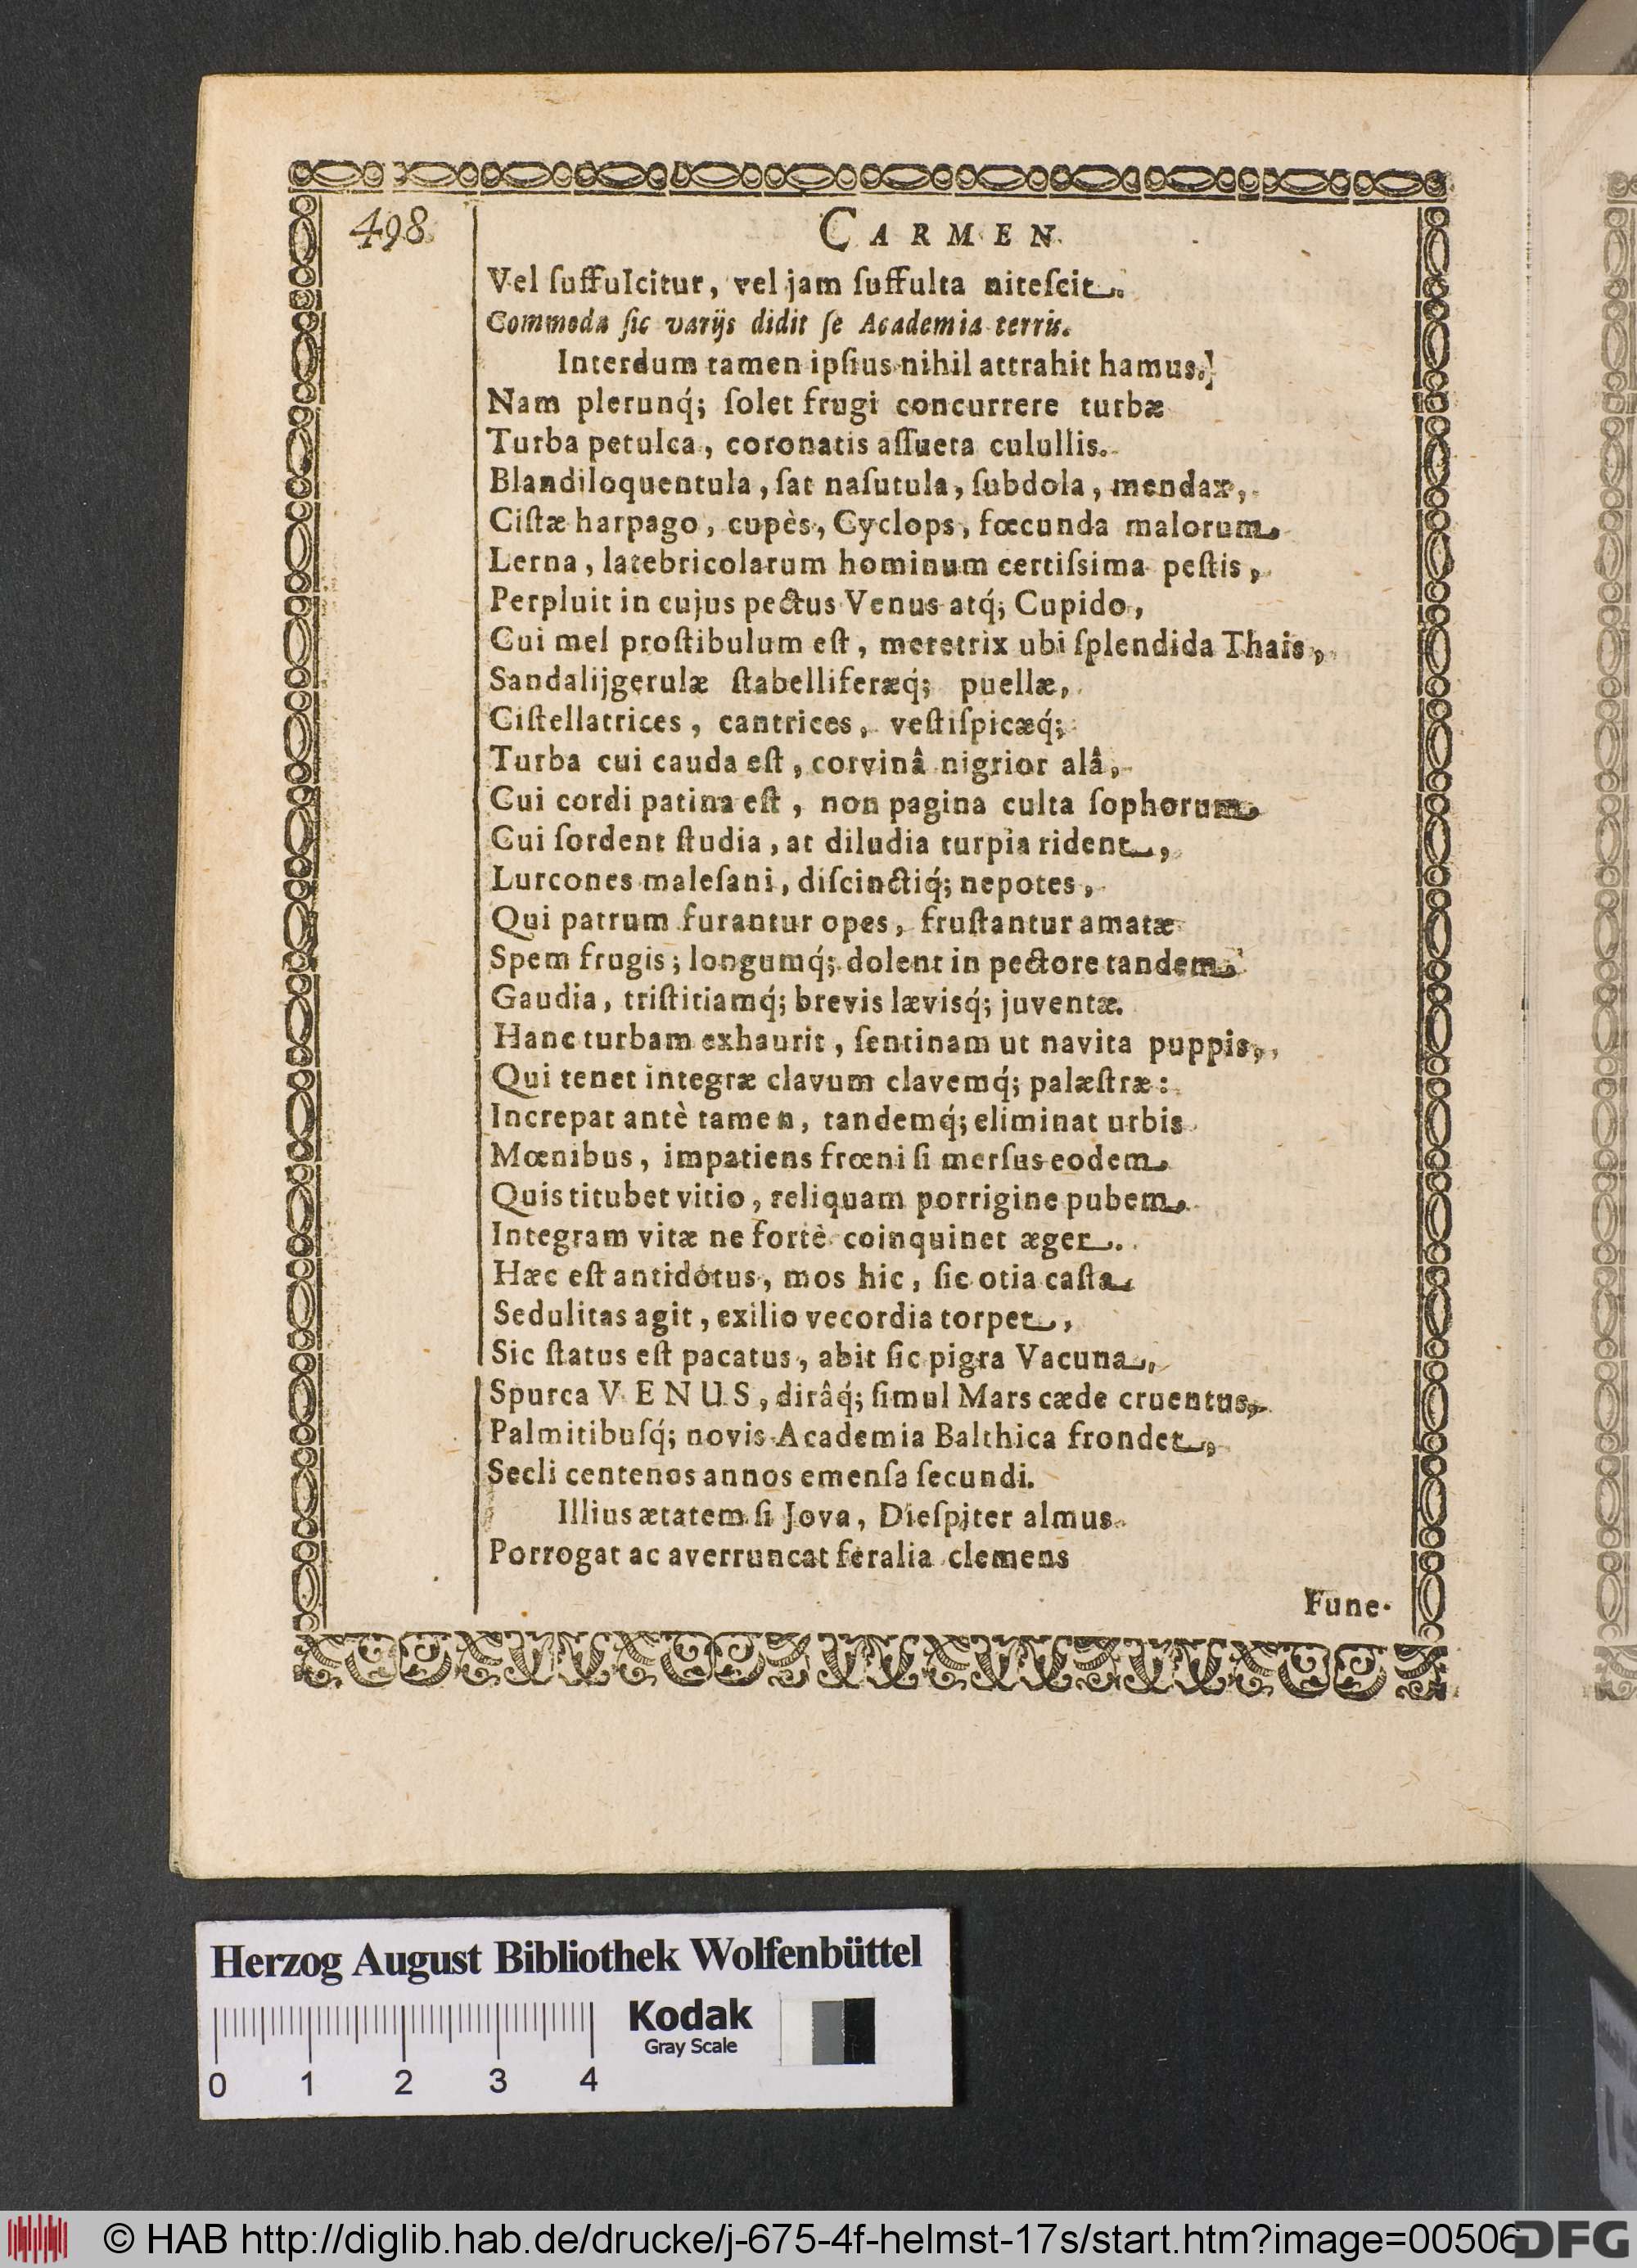 498
CARMEN.
Vel ſuffulcitur, vel jam ſuffulta niteſcit.
Commoda ſic varijs didit ſe Academia terris.
Interdum tamen ipſius nihil attrahit hamus.
Nam plerunq́; ſolet frugi concurrere turbæ
Turba petulca, coronatis aſſueta culullis.
Blandiloquentula, ſat naſutula, ſubdola, mendax,
Ciſtæ harpago, cupès, Cyclops, fœcunda malorum
Lerna, latebricolarum hominum certiſsima peſtis,
Perpluit in cujus pectus Venus atq́; Cupido,
Cui mel proſtibulum eſt, meretrix ubi ſplendida Thais,
Sandalijgerulæ ſtabelliferæq́; puellæ,
Ciſtellatrices, cantrices, veſtiſpicæq́;
Turba cui cauda eſt, corvinâ nigrior alâ,
Cui cordi patina eſt, non pagina culta ſophorum
Cui ſordent ſtudia, at diludia turpia rident,
Lurcones maleſani, diſcinctiq́; nepotes,
Qui patrum furantur opes, fruſtantur amatæ
Spem frugis; longumq́; dolent in pectore tandem
Gaudia, triſtitiamq́; brevis lævisq́; juventæ.
Hanc turbam exhaurit, ſentinam ut navita puppis,
Qui tenet integræ clavum clavemq́; palæſtræ:
Increpat antè tamen, tandemq́; eliminat urbis
Mœnibus, impatiens frœni ſi merſus eodem
Quis titubet vitio, reliquam porrigine pubem
Integram vitæ ne fortè coinquinet æger.
Hæc eſt antidotus, mos hic, ſic otia caſta
Sedulitas agit, exilio vecordia torpet,
Sic ſtatus eſt pacatus, abit ſic pigra Vacuna,
Spurca VENUS, dirâq́; ſimul Mars cæde cruentus,
Palmitibuſq́; novis Academia Balthica frondet,
Secli centenos annos emenſa ſecundi.
Illius ætatem ſi Jova, Dieſpiter almus
Porrogat ac averruncat feralia clemens
Fune-
Herzog August Bibliothek Wolfenbüttel
Kodak
Gray Scale
0 1 2 3 4
© HAB http://diglib.hab.de/drucke/j-675-4f-helmst-17s/start.htm?image=00506
DFG